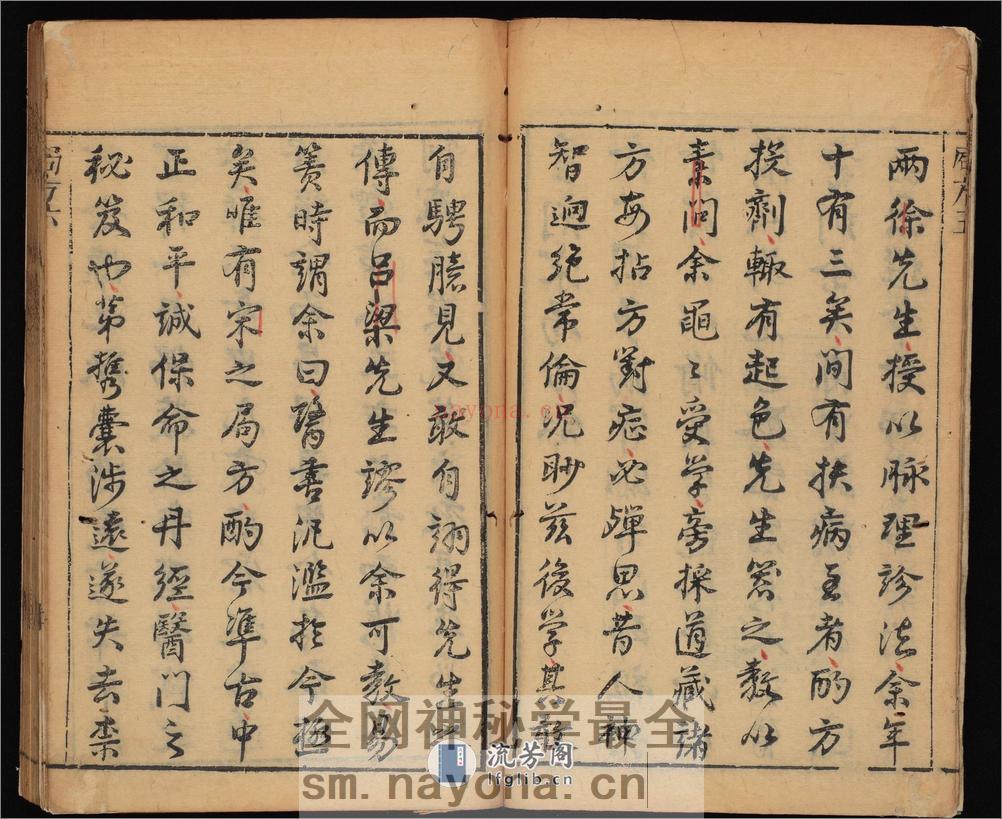 兩徐先生授以脉理診法余年
十有三矣間有扶病至者酌方
投劑輙有起色先生器之教以
素問余黽〻受學旁採道藏諸
方每拈方對症必殫思昔人神
智迥絶常倫况眇兹後學其敢
自騁臆見又敢自詡得先生
傳而吕梁先生謬以余可教易
簀時謂余曰醫書汜濫於今極
矣唯有宋之局方酌今準古中
正和平誠保命之丹經醫門之
秘笈也第携囊涉遠遂失去棗
局方六
全网神秘学最全
流芳阁
lfglib.cn
sm.nayona.cn
nayona.cn